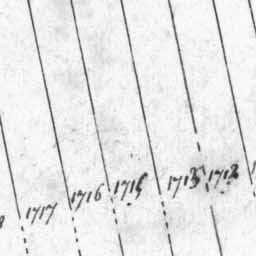 1717 1716 1715 1713 1712